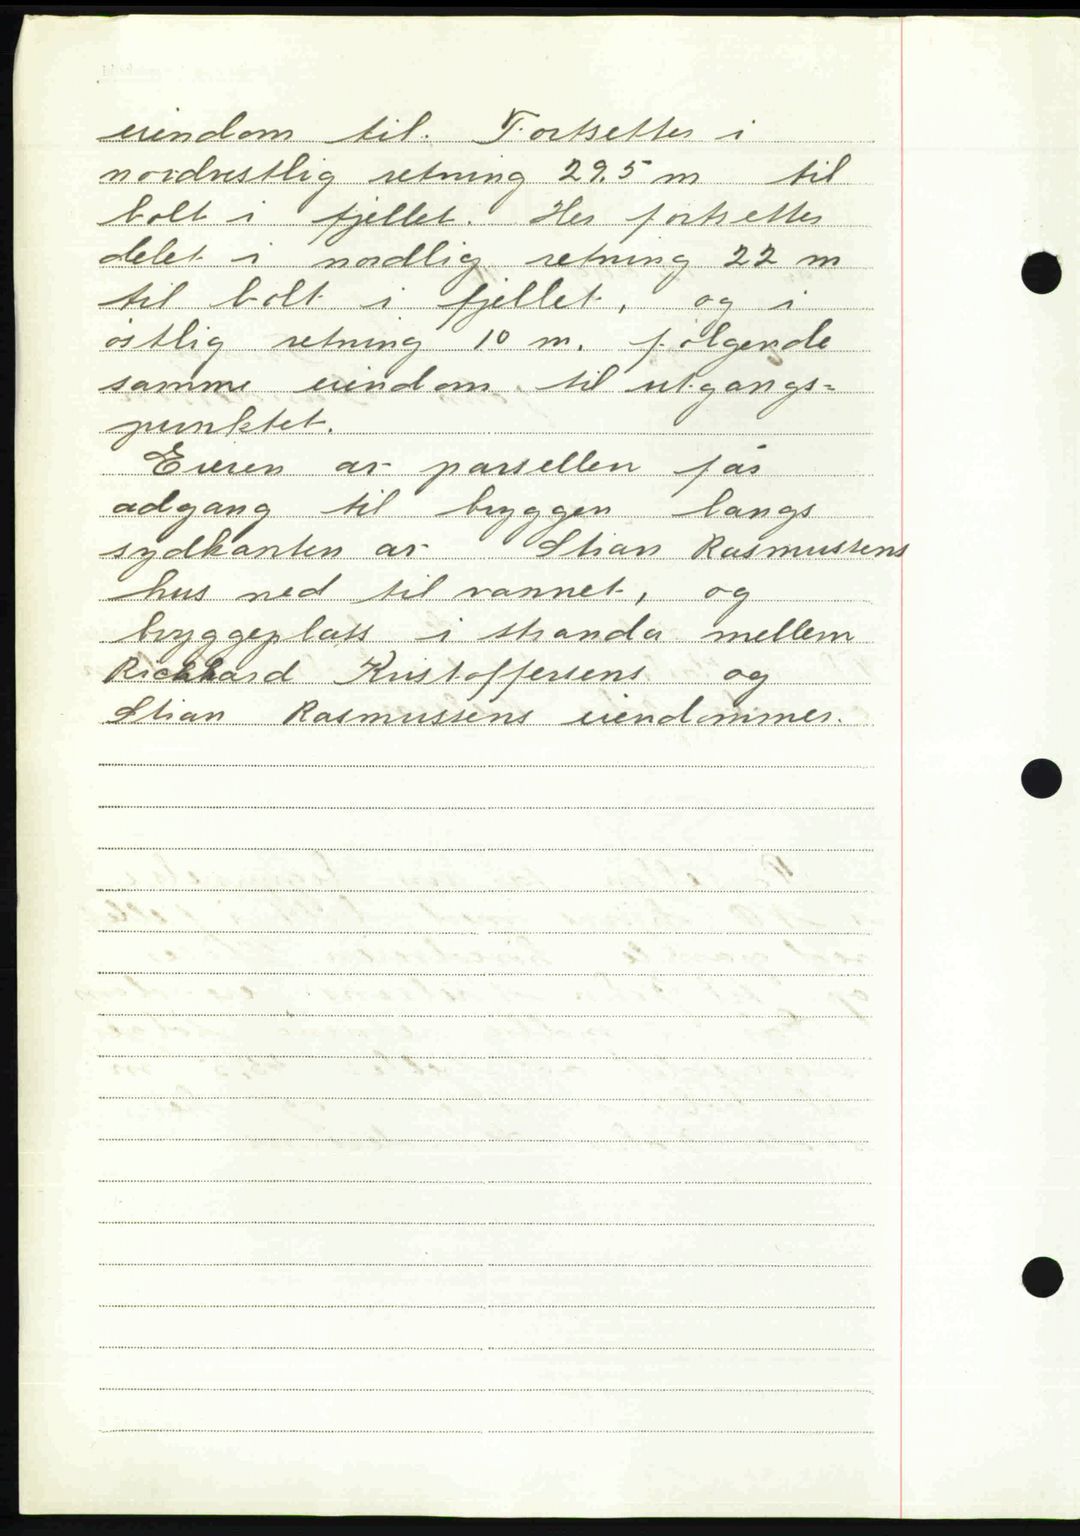 eiendom til. Fortsetter i
nordvestlig retning 29.5 m til
bolt i fjellet. Her fortsetter
delet i nordlig retning 22 m
til bolt i fjellet, og i
östlig retning 10 m. følgende
samme eiendom til utgangs=
punktet.
Eieren av parsellen fås
adgang til bryggen langs
sydkanten av Stian Rasmussens
hus ned til vannet, og
bryggeplass i stranda mellem
Richard Kristoffersens og
Stian Rasmussens eiendommer.